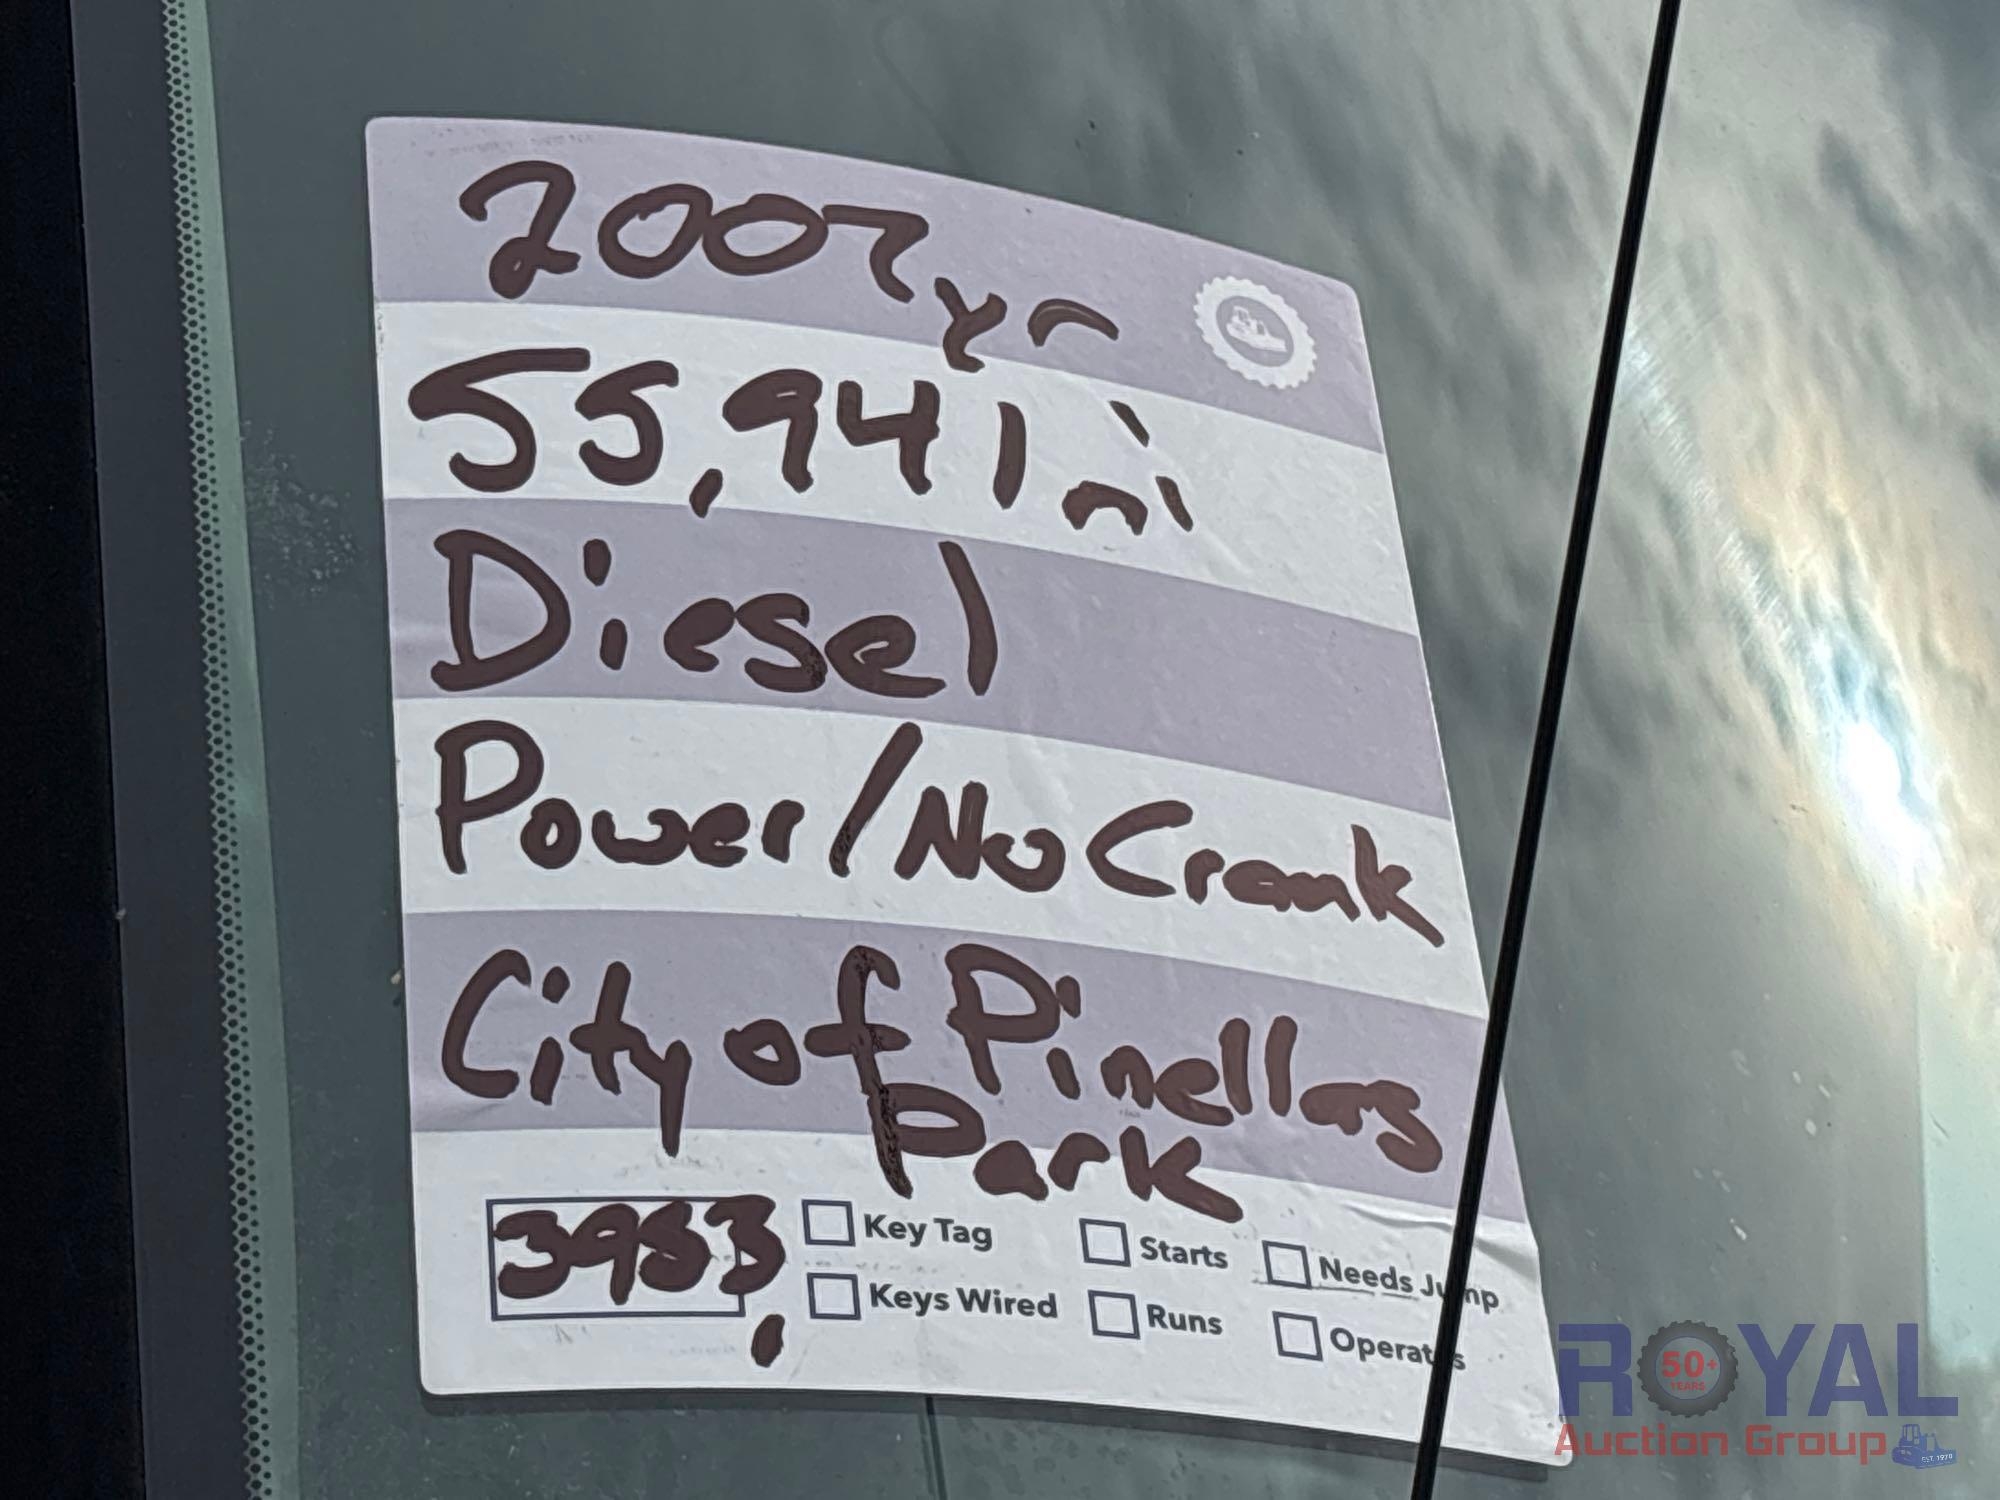 2007 yr
55,941 mi
Diesel
Power/No Crank
City of Pinellas
Park
3953
Key Tag
Starts
Needs Jump
Keys Wired
Runs
Operates
ROYAL
50+
YEARS
Auction Group
EST. 1970